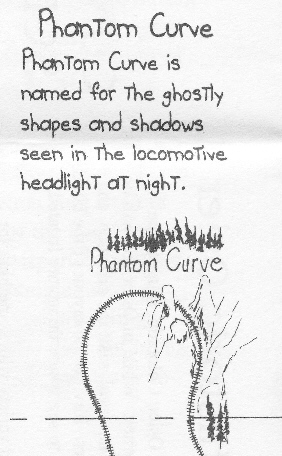 Phantom Curve
Phantom Curve is
named for the ghostly
shapes and shadows
seen in the locomotive
headlight at night.
Phantom Curve